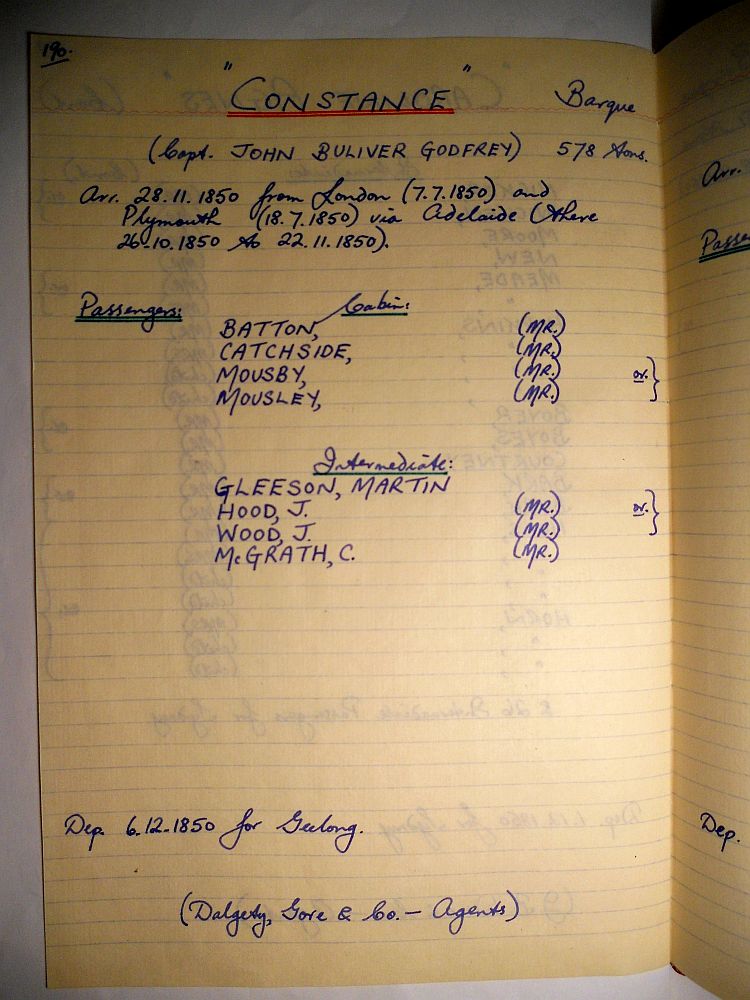 190.
"CONSTANCE" Barque
(Capt. JOHN BULIVER GODFREY) 578 tons.
Arr. 28.11.1850 from London (7.7.1850) and
Plymouth (18.7.1850) via Adelaide (there
26.10.1850 to 22.11.1850).
Passengers: Cabin:
BATTON, (MR.)
CATCHSIDE, (MR.)
MOUSBY, (MR.) or. }
MOUSLEY, (MR.)
Intermediate:
GLEESON, MARTIN
HOOD, J. (MR.) or. }
WOOD, J. (MR.)
McGRATH, C. (MR.)
Dep. 6.12.1850 for Geelong.
(Dalgety, Gore & Co. - Agents)
Arr.
Passe
Dep.